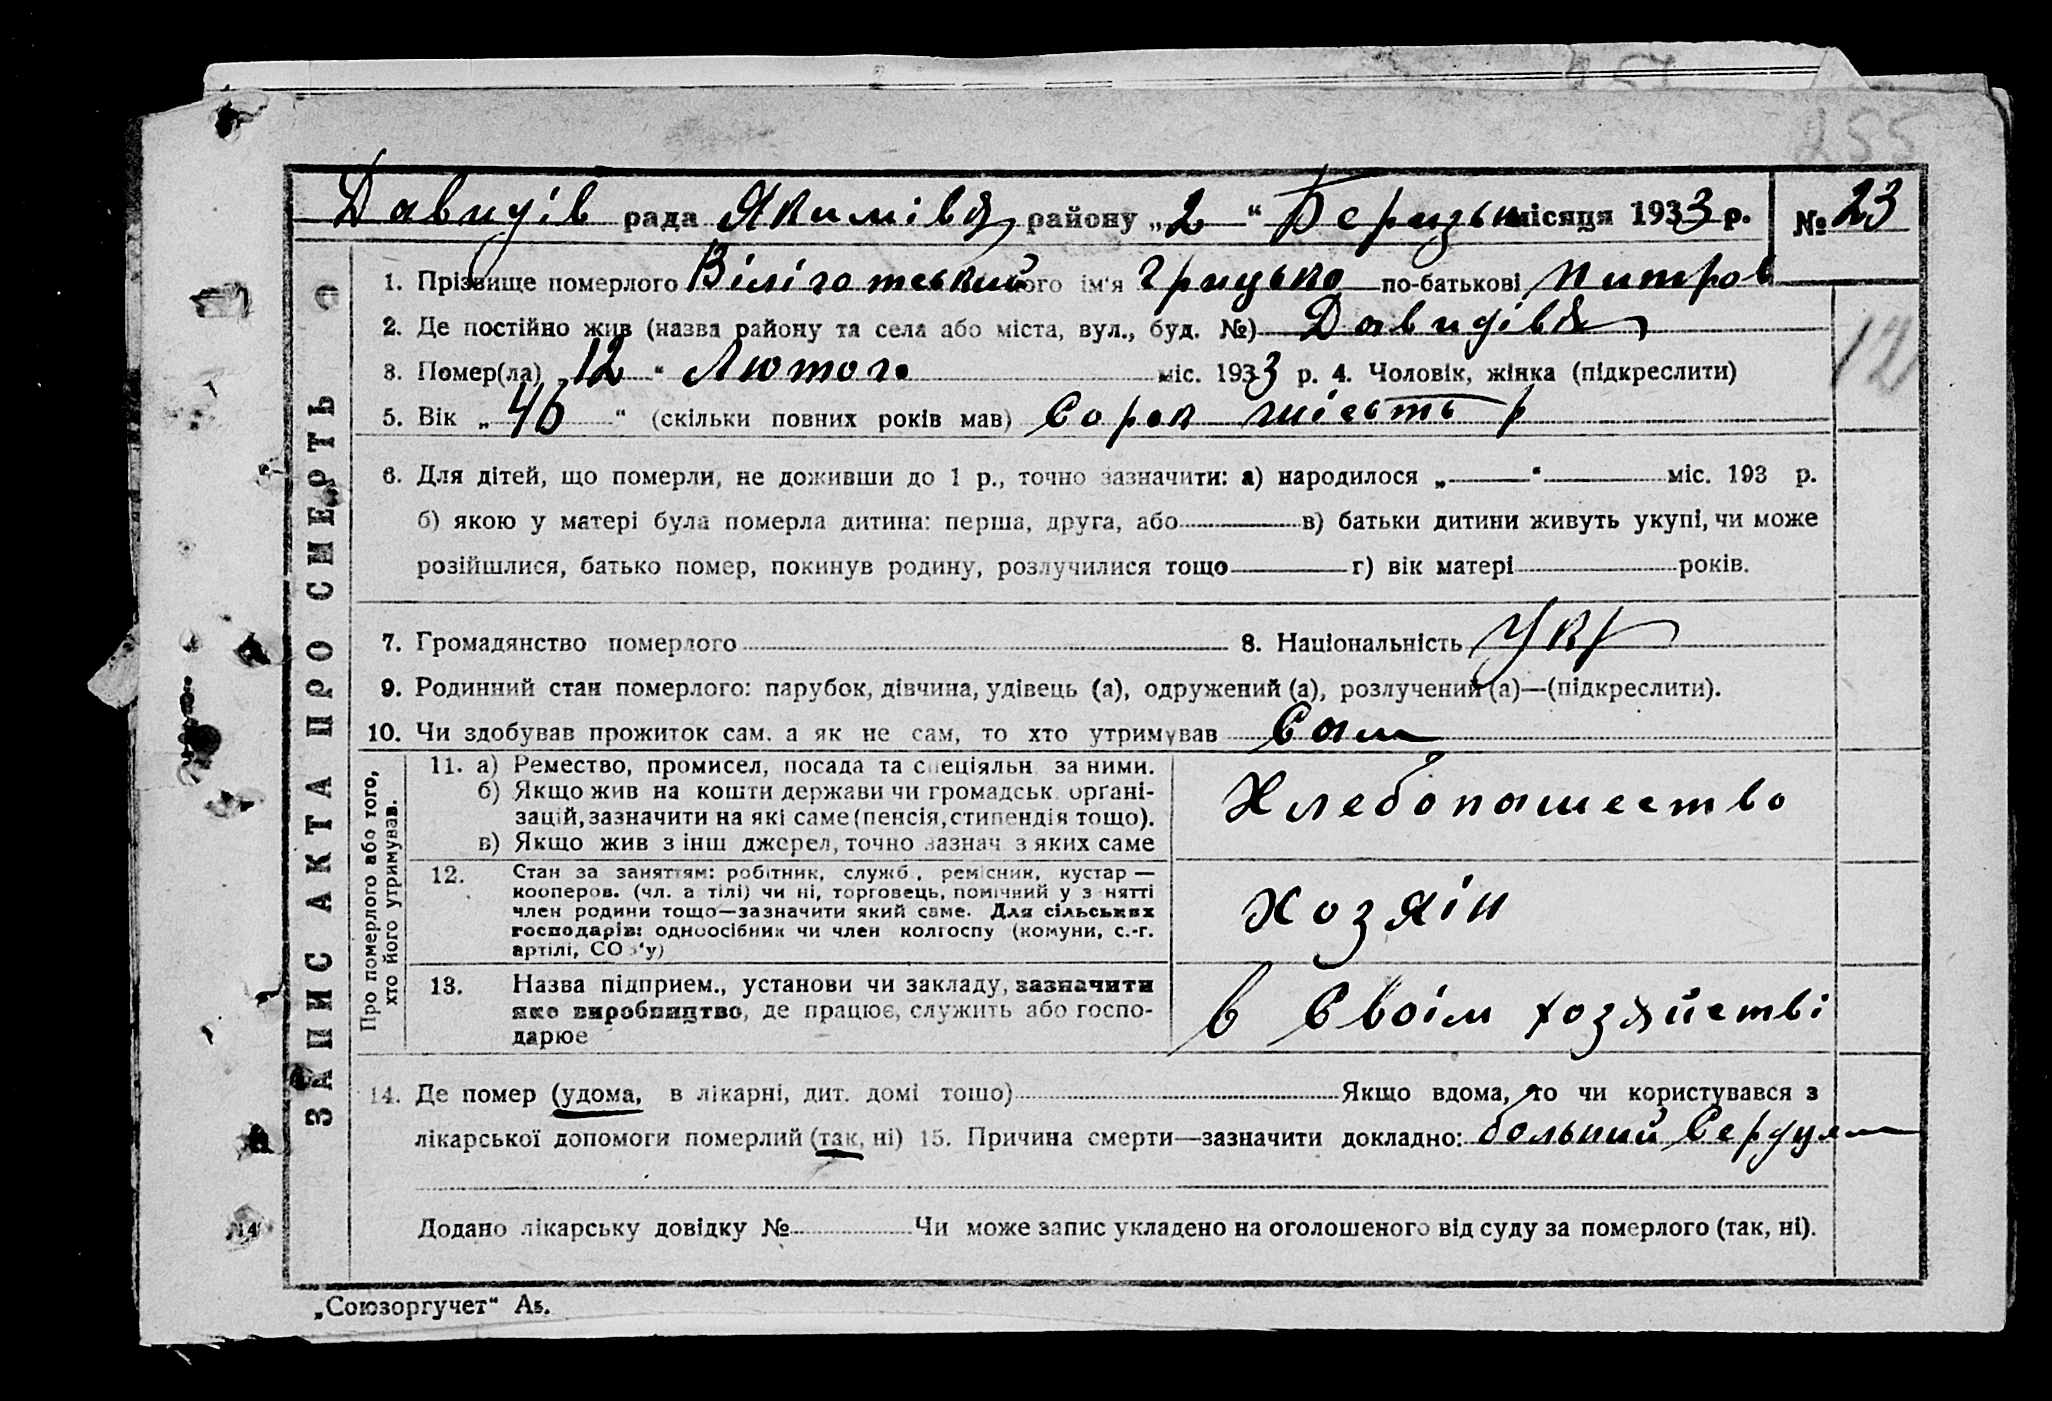 255
Давидів рада Якимівск району „2“ Березня місяця 1933 р. № 23
ЗАПИС АКТА ПРО СМЕРТЬ
1. Прізвище померлого Віліготський його ім'я Грицько по-батькові Питров
2. Де постійно жив (назва району та села або міста, вул., буд. №) Давидівк
12
3. Помер(ла) „12“ Лютого міс. 1933 р. 4. Чоловік, жінка (підкреслити)
5. Вік „46“ (скільки повних років мав) Сорок шість р
6. Для дітей, що померли, не доживши до 1 р., точно зазначити: а) народилося „ “ міс. 193 р.
б) якою у матері була померла дитина: перша, друга, або в) батьки дитини живуть укупі, чи може
розійшлися, батько помер, покинув родину, розлучилися тощо г) вік матері років.
7. Громадянство померлого 8. Національність Укр
9. Родинний стан померлого: парубок, дівчина, удівець (а), одружений (а), розлучений (а)—(підкреслити).
10. Чи здобував прожиток сам. а як не сам, то хто утримував Сам
Про померлого або того, хто його утримував.
11. а) Ремество, промисел, посада та спеціяльн за ними.
б) Якщо жив на кошти держави чи громадськ органі-
зацій, зазначити на які саме (пенсія, стипендія тощо).
в) Якщо жив з інш джерел, точно зазнач з яких саме
Хлебопашество
12. Стан за заняттям: робітник, служб., ремісник, кустар —
кооперов. (чл. а тілі) чи ні, торговець, помічний у з нятті
член родини тощо—зазначити який саме. Для сільських
господарів: одноосібник чи член колгоспу (комуни, с.-г.
артілі, СО з'у)
Хозяін
13. Назва підприєм., установи чи закладу, зазначити
яке виробництво, де працює, служить або госпо-
дарює
в Своім хозяйстві
14. Де помер (удома, в лікарні, дит. домі тощо) Якщо вдома, то чи користувався з
лікарської допомоги померлий (так, ні) 15. Причина смерти—зазначити докладно: больний Сердцем
Додано лікарську довідку № Чи може запис укладено на оголошеного від суду за померлого (так, ні).
„Союзоргучет“ А5.